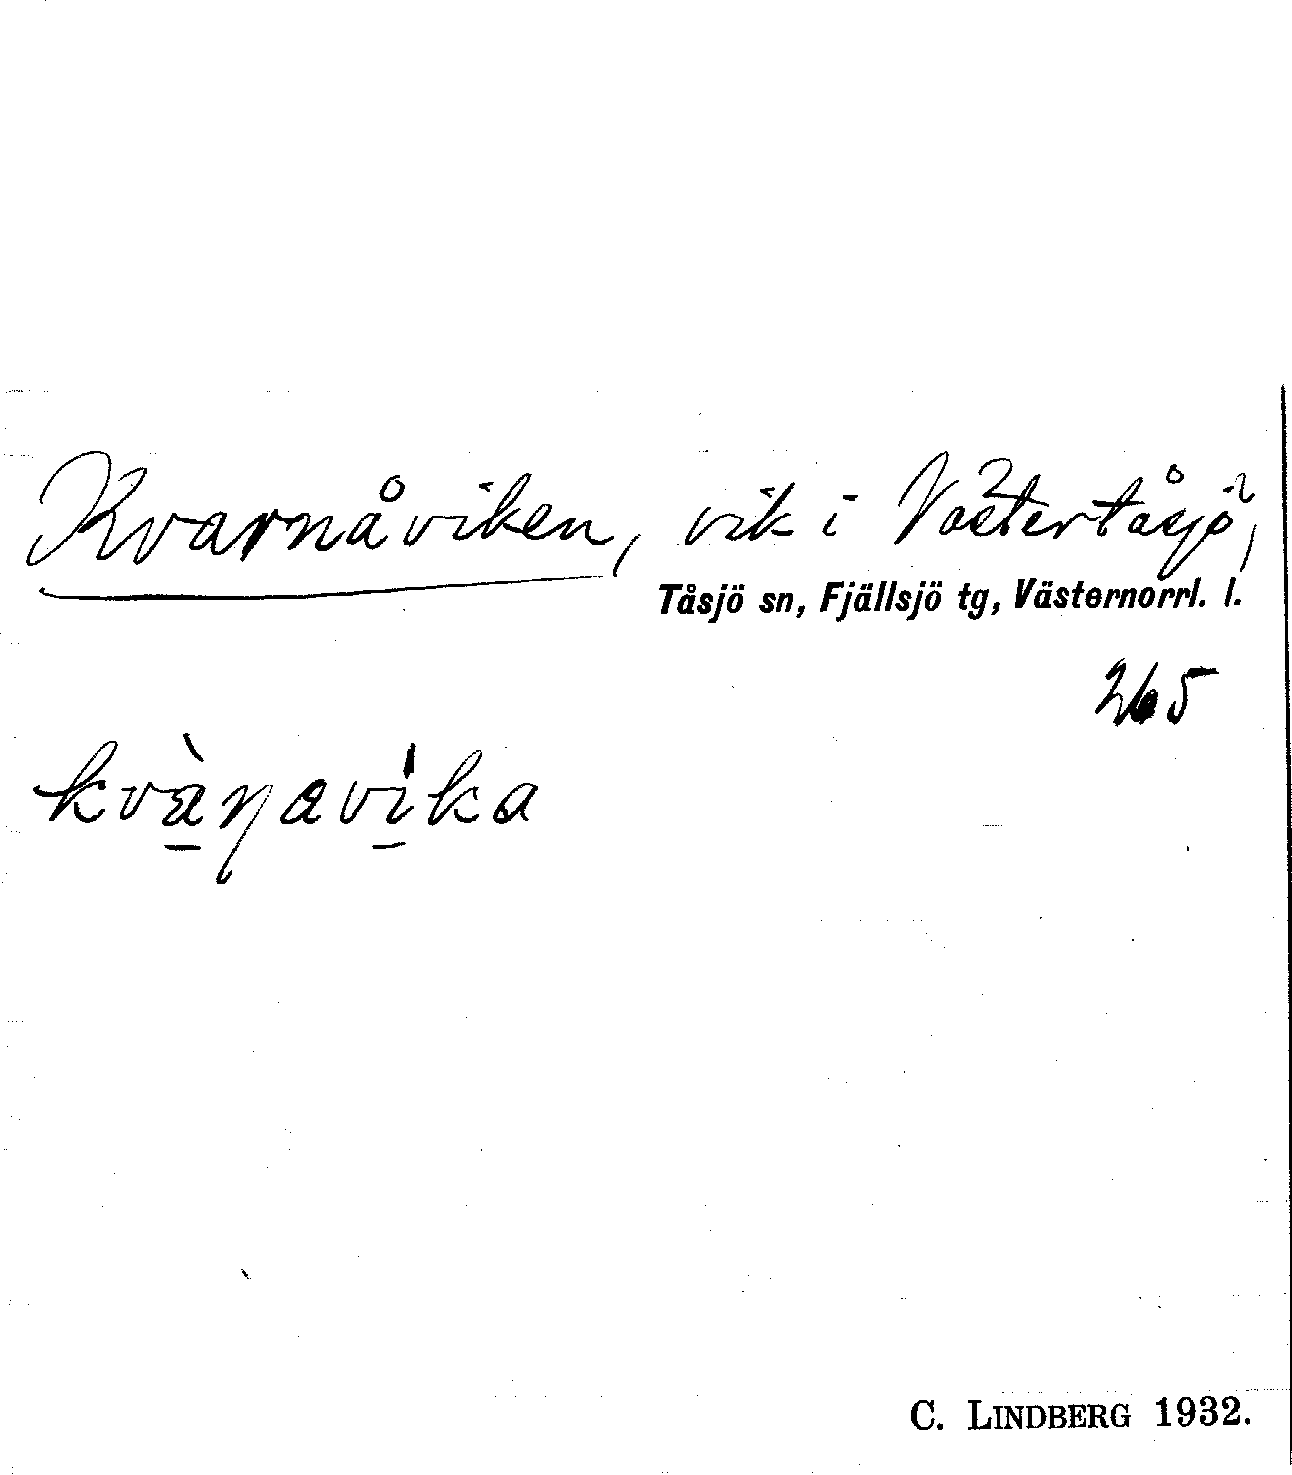 Kvarnåviken, vik i Västertåsjö,
Tåsjö sn, Fjällsjö tg, Västernorrl. l.
265
kvàṇavika
C. LINDBERG 1932.